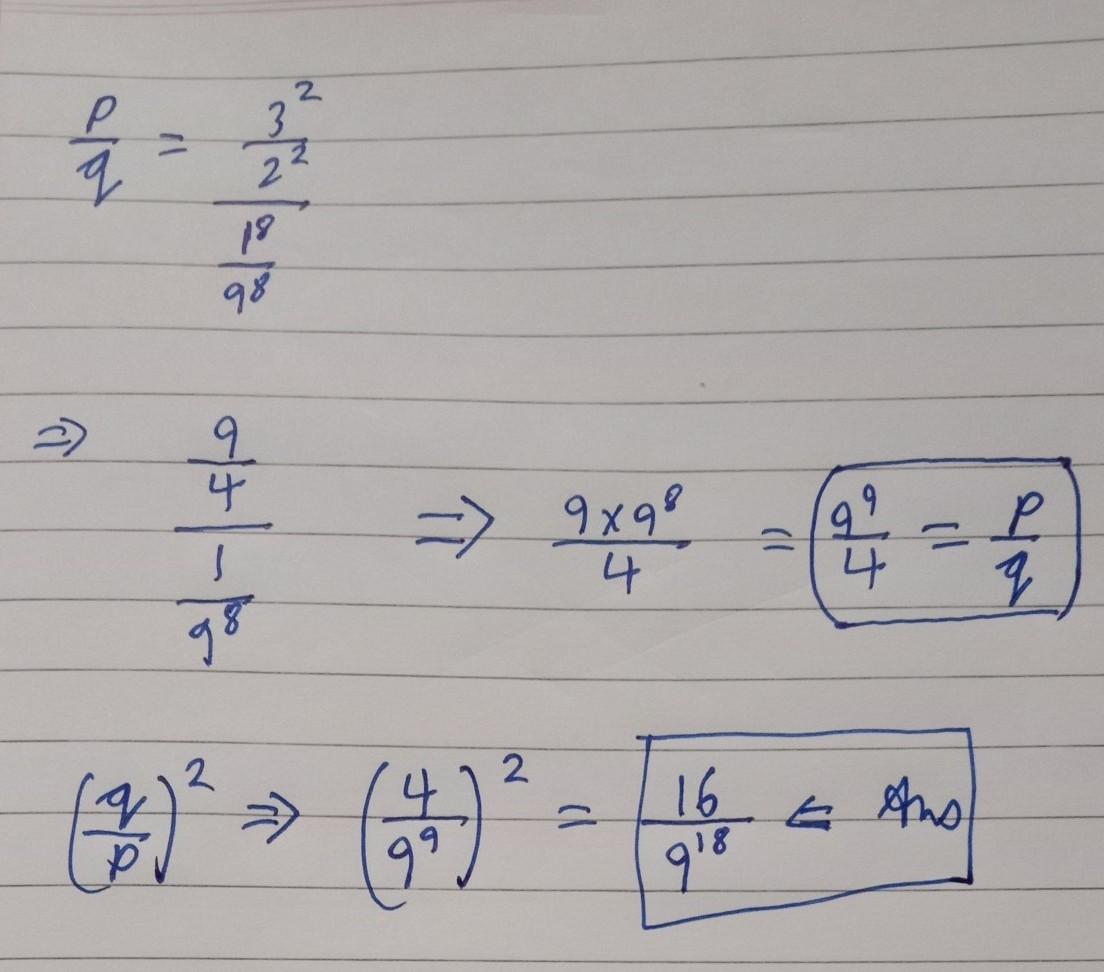 p/q = (3²/2²)/(1⁸/9⁸)
⇒ (9/4)/(1/9⁸) ⇒ (9×9⁸)/4 = 9⁹/4 = p/q
(q/p)² ⇒ (4/9⁹)² = 16/9¹⁸ ⇐ Ans